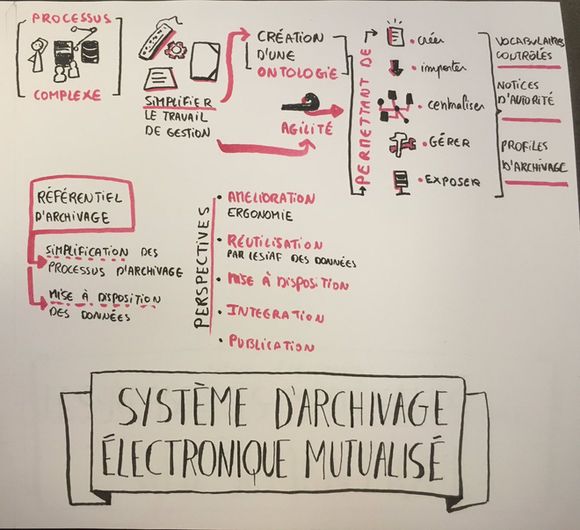 PROCESSUS
COMPLEXE
SIMPLIFIER
LE TRAVAIL
DE GESTION
CRÉATION
D'UNE
ONTOLOGIE
AGILITÉ
PERMETTANT DE
• créer
• importer
• centraliser
• GÉRER
• EXPOSER
VOCABULAIRES
CONTRÔLÉS
NOTICES
D'AUTORITÉ
PROFILES
D'ARCHIVAGE
RÉFÉRENTIEL
D'ARCHIVAGE
SIMPLIFICATION DES
PROCESSUS D'ARCHIVAGE
MISE À DISPOSITION
DES DONNÉES
PERSPECTIVES
• AMELIORATION
ERGONOMIE
• RÉUTILISATION
PAR LES IAF DES DONNÉES
• MISE À DISPOSITION
• INTEGRATION
• PUBLICATION
SYSTÈME D'ARCHIVAGE
ÉLECTRONIQUE MUTUALISÉ